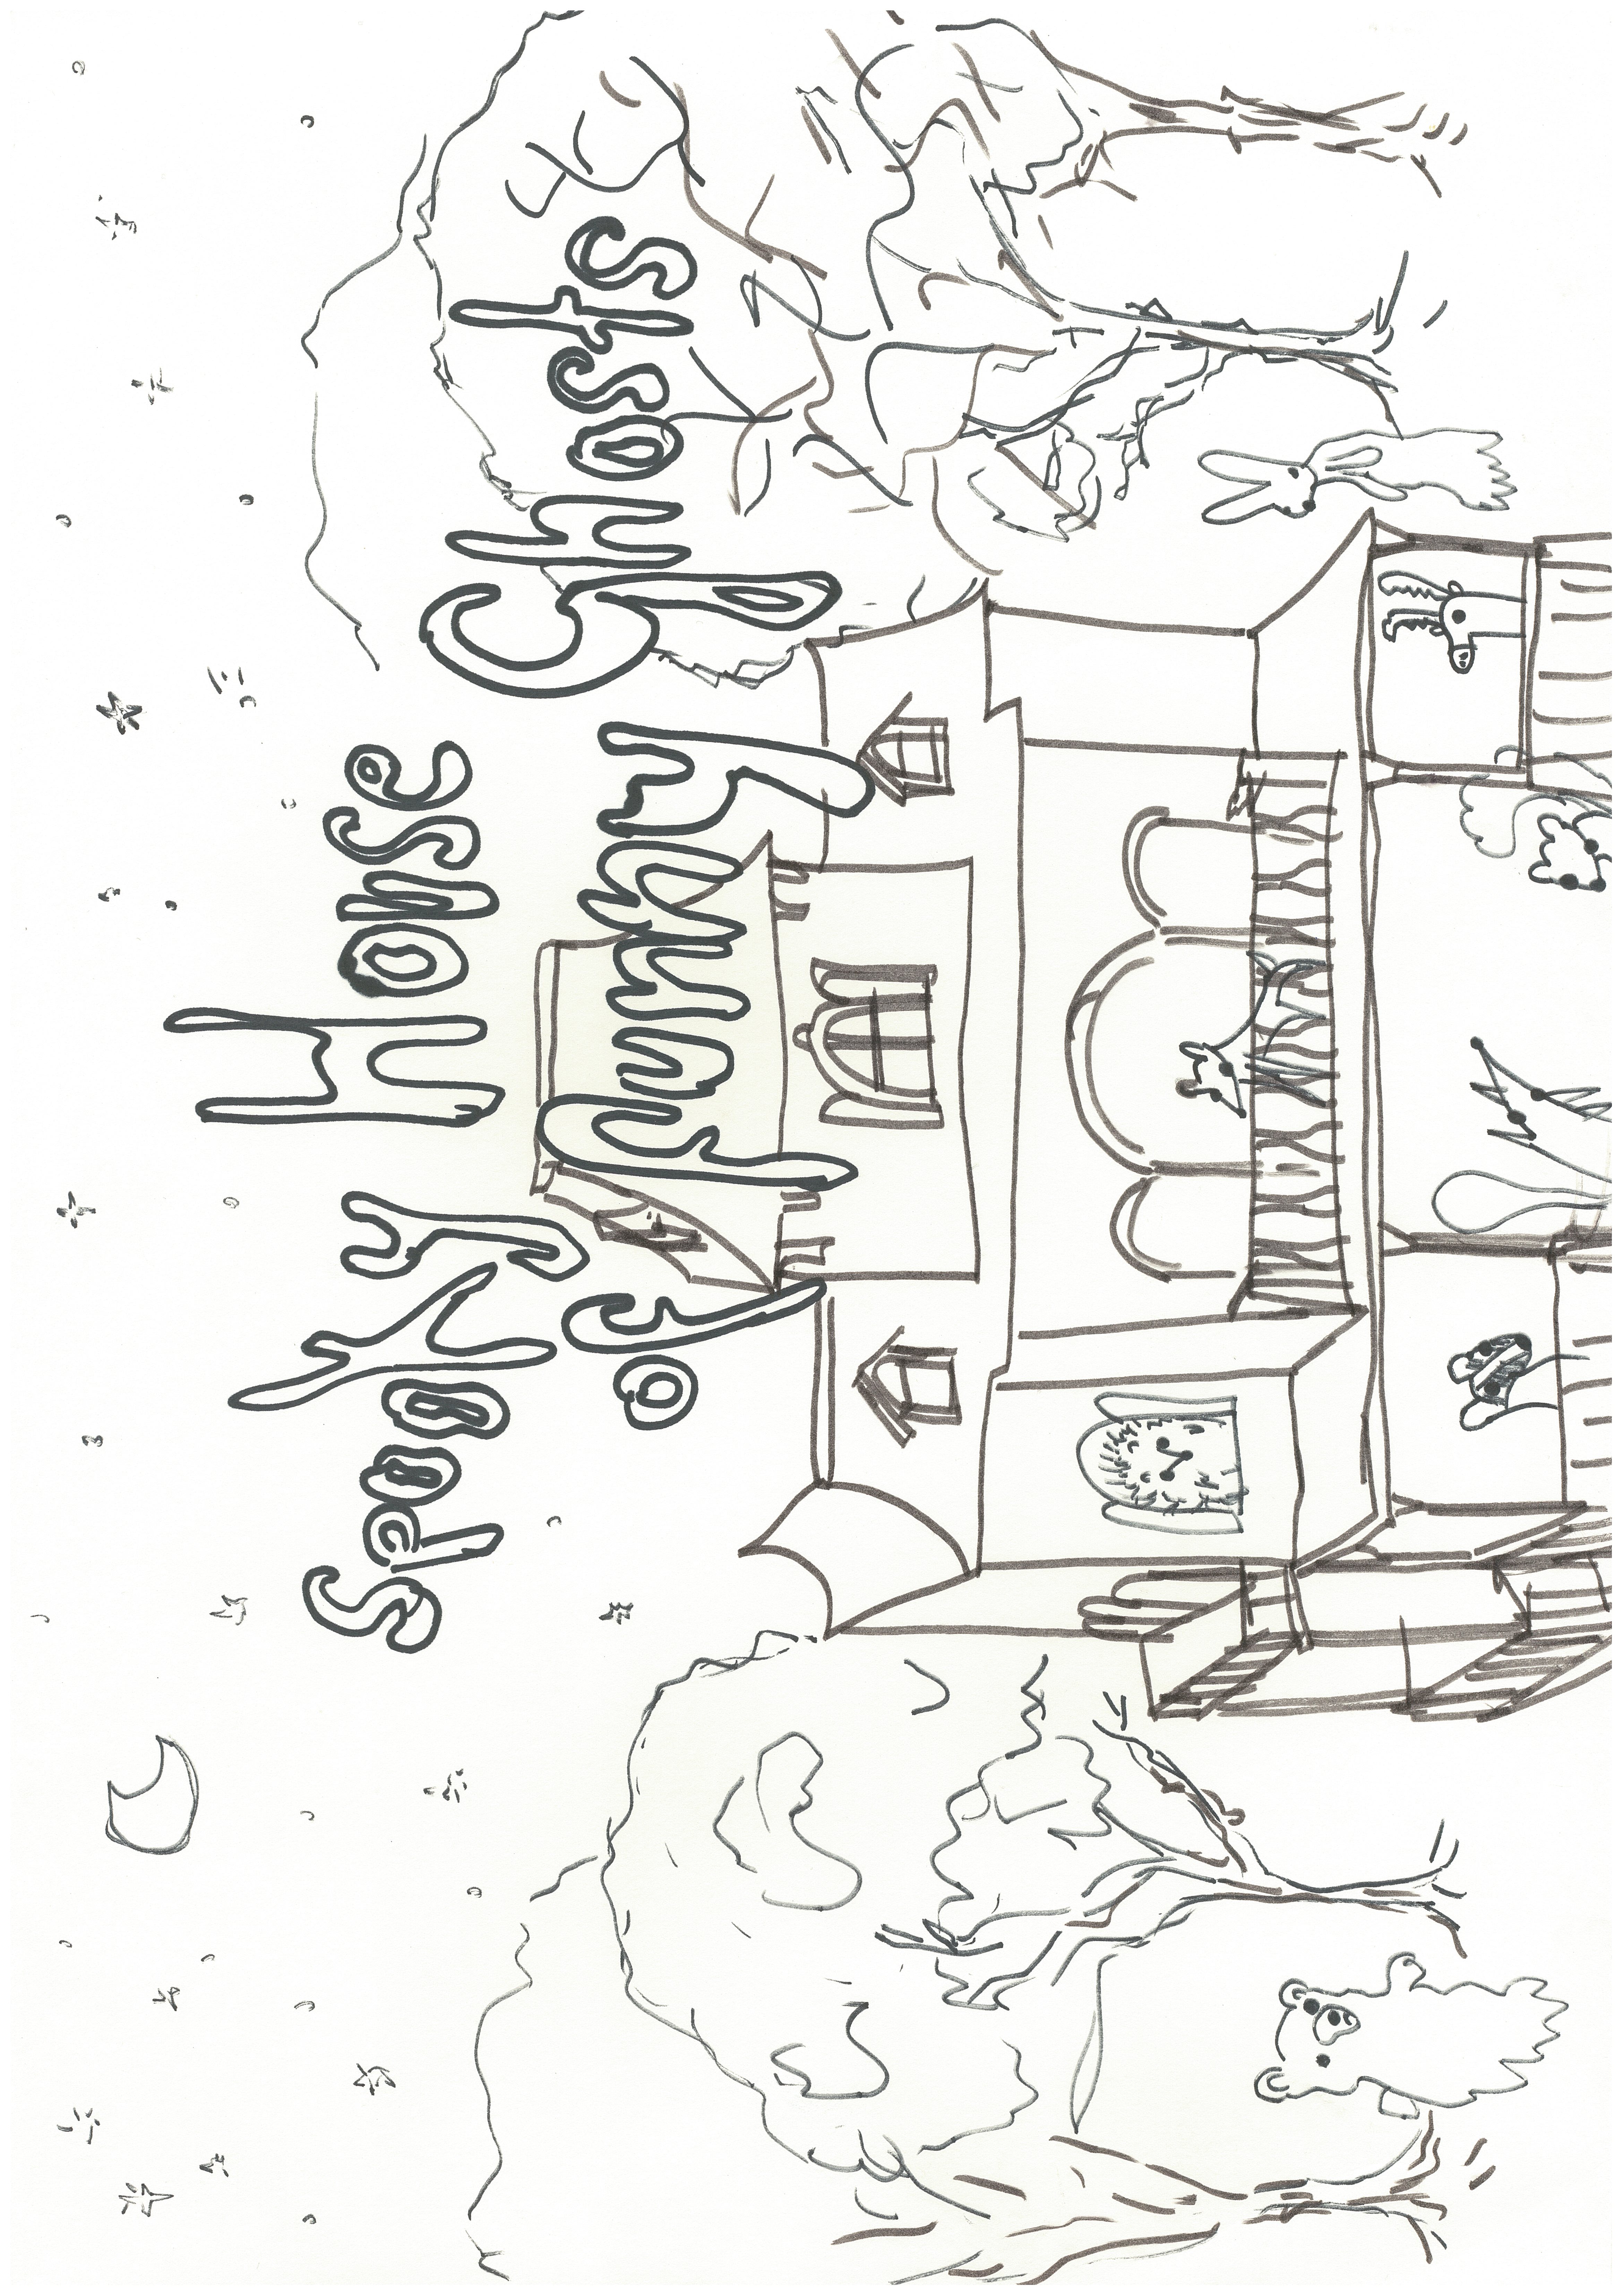 Spooky House
of Funky Ghosts